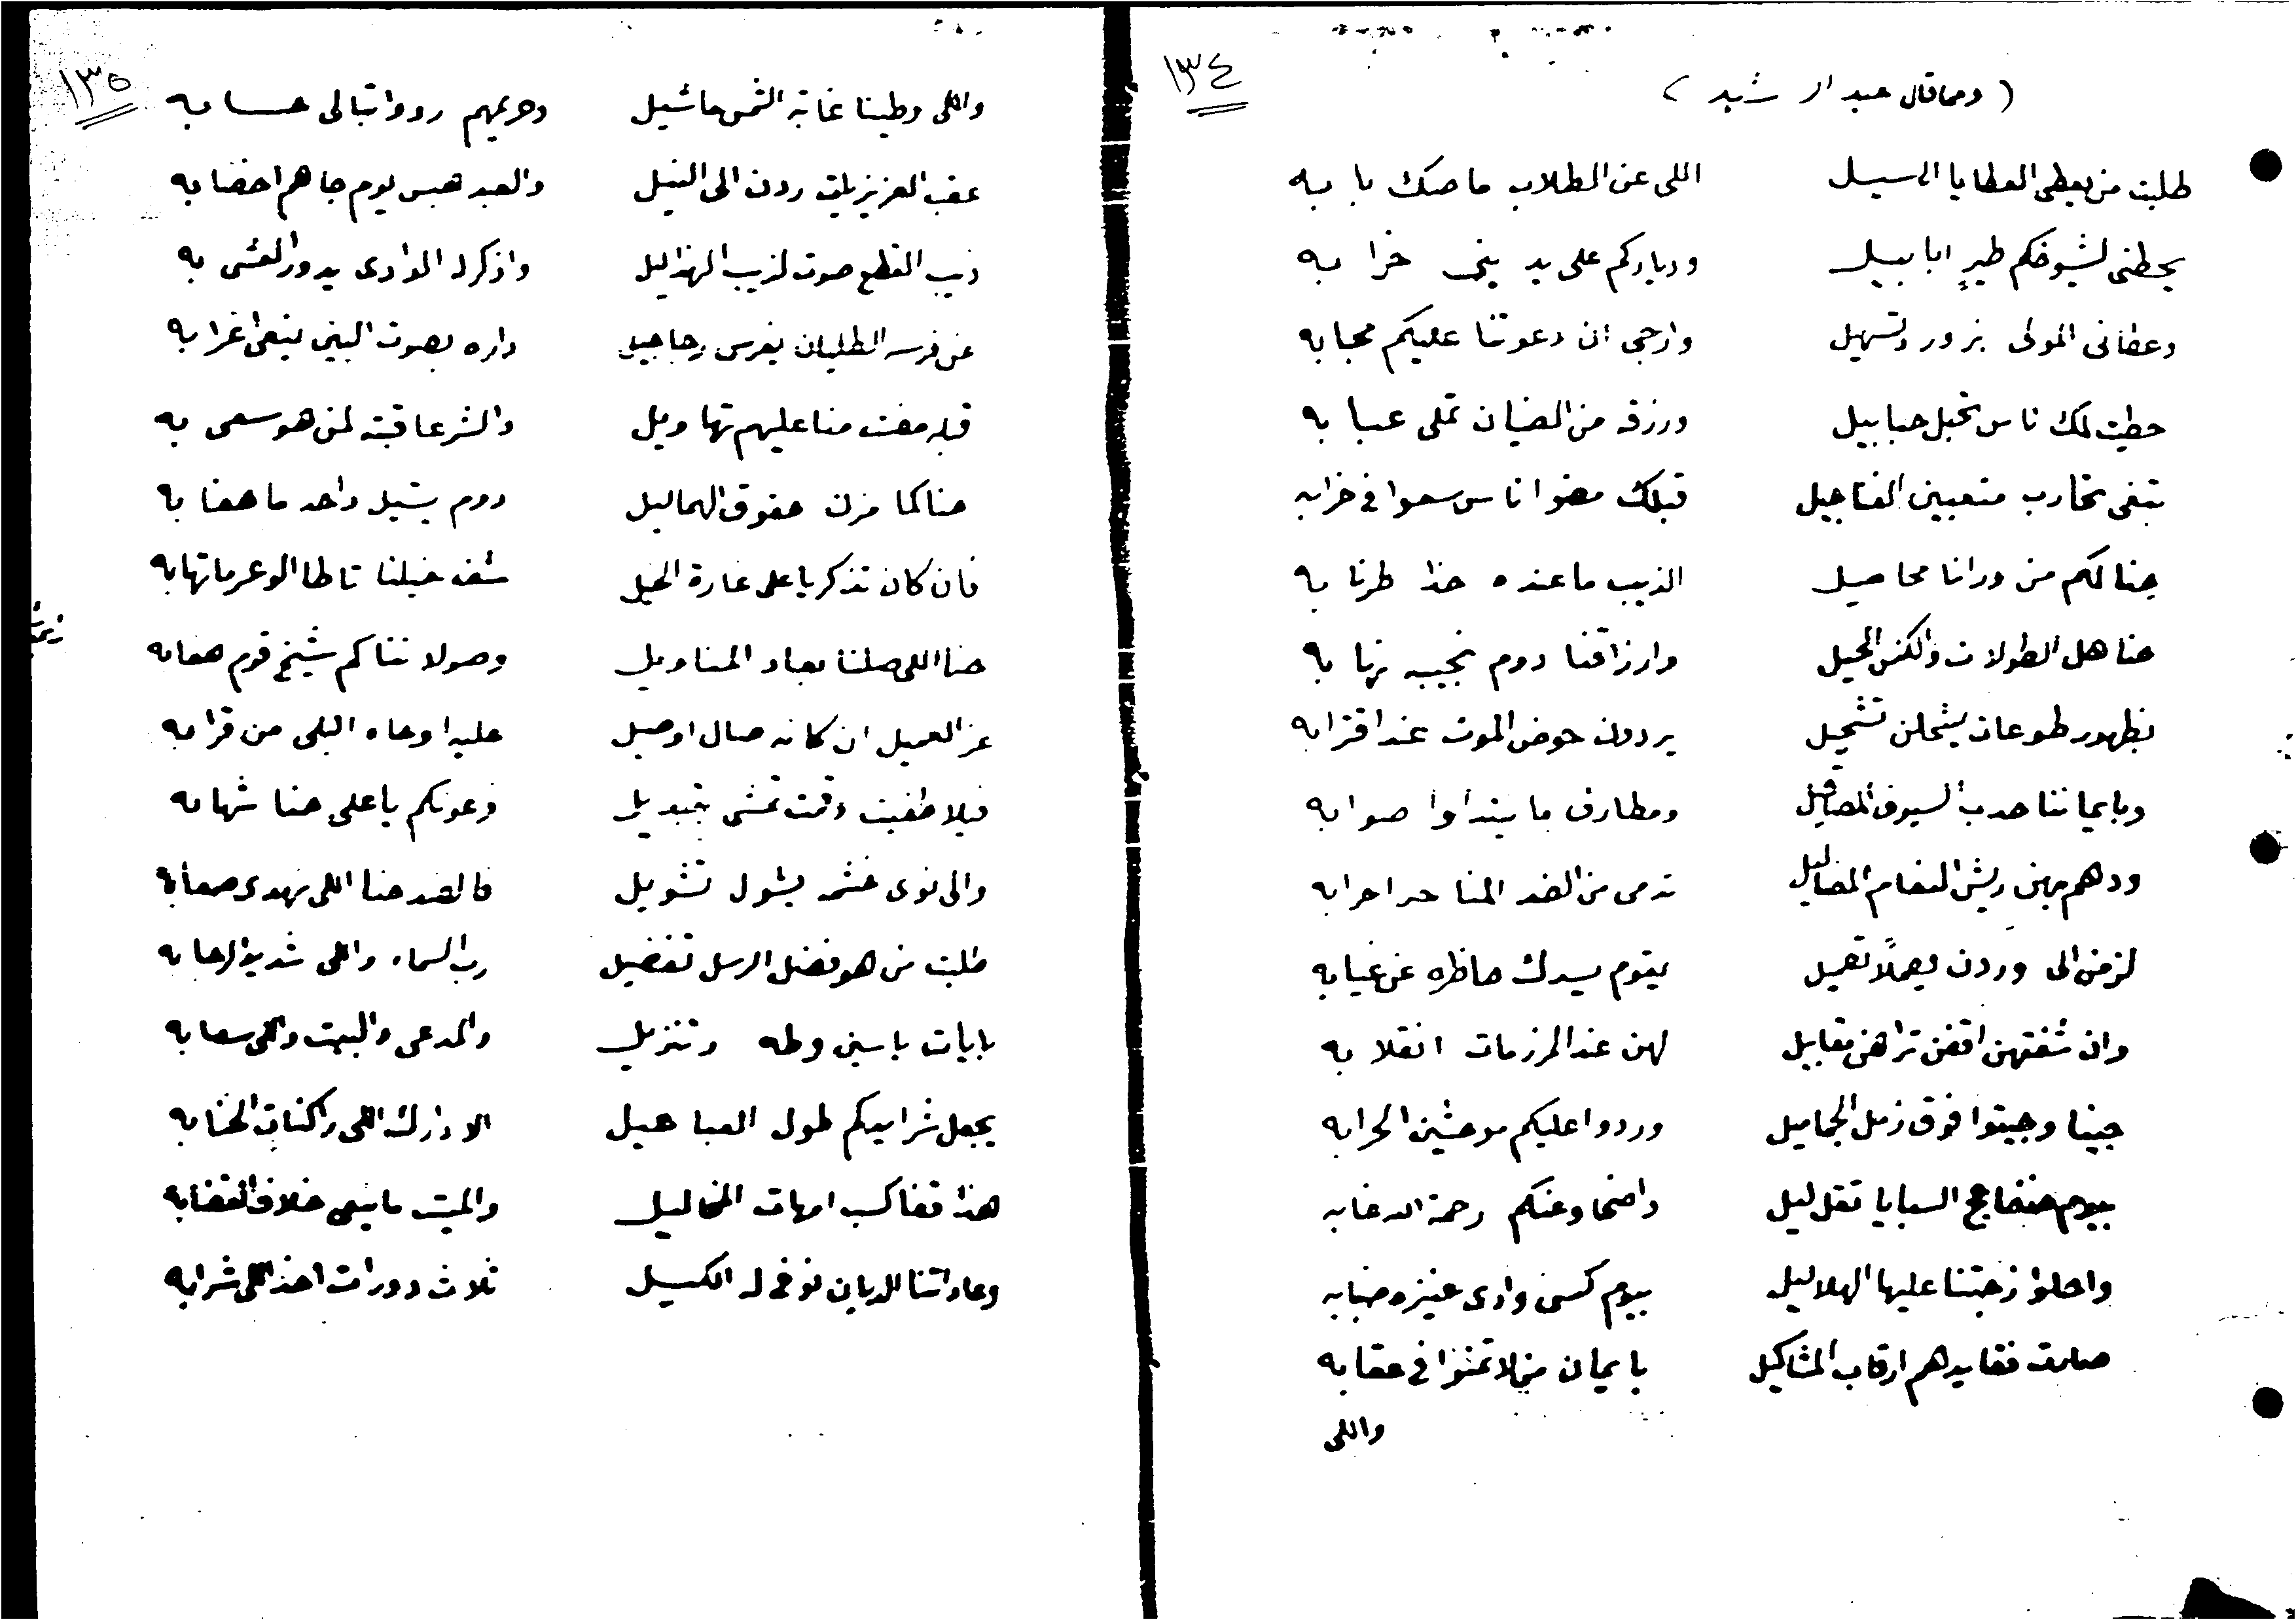 ١٣٤
( ومما قال عبيد الرشيد )
طلبت من يعطى العطايا الى سيل اللى عن الطلاب ما صك بابه
يحطنى لشيوخكم طيرٍ ابابيل ودياركم على يدينى خرابه
وعطانى المولى بزور وتسهيل وارجى ان دعوتنا عليكم مجابه
حطيت لك ناس تخبل حبابيل ورزقه من الضيان تملى عبابه
تبغى تحارب متعبين الفناجيل قبلك مضوا ناس سعوا فى خرابه
حنا لكم من ورانا محاصيل الذيب ما عنده حذا طرنابه
حنا هل الطولات والكنس الحيل وارزاقنا دوم نجيبه نهابه
بظهور طوعات يشحلن تشحيل يردون حوض الموت عند اقترابه
وبايماننا حدب السيوف المصاقيل ومطارق ما يتداوا صوابه
ودهم بهن ريش النعام المضاليل تدمى من الضد المناحر احرابه
لزمن الى وردن يعملاً تعميل بقوم يسدك حاظره عن غيابه
وان شفتهن اقفن تراهن مقابيل لهن عند المرزمات انقلابه
جينا وجيتوا فوق زمل الجماميل وردوا عليكم موحشين الحرابه
بيوم السبايا تقل ليل واضحا وعنكم رحمة الله غابه
واحلوا زجتنا عليها الهلاليل بيوم كسى وادى عنيزه ضبابه
صارت فقايدهم ارقاب المشاكيل بايمان من لا تمنوا فى عقابه
واللى
١٣٥
واللى وطينا غابة الشمس ما شيل وحريمهم ردوا تبالى حسابه
عقب العزيز يلين ردن الى النيل والعبد هبس يوم جاهم اخضابه
ذيب القطع صوت لذيب الهذاليل واذكر له الوادى يدور العشى به
عن فرسه الطليان يفرس رجاجيل داره بصوت البين ينعى غرابه
قبله مضت منا عليهم تهاويل والشر عاقبته لمن هو سعى به
حنا كما مزن حقوق الهماليل دوم يشيل واحد ما هفا به
فان كان تذكر يا على غارة الخيل شف خيلنا تاطا الوعر ما تهابه
حنا اللى صلنا بعاد المناويل وصولاتنا كم شيخ قوم
عز العميل ان كانه صال او صيل عليه اوجاه البلى من قرابه
فيلا طفيت وقمت تمشى بتبديل فرعونكم يا على حنا شهابه
والى نوى خشمه يشول تشويل فالضد حنا اللى نهدى صعابه
طلبت من هو فضل الرسل تفضيل رب السماء واللى شديد العقابه
بايات ياسين وطه وتنزيل والمدعى والبيت واللى سعابه
يجعل شرايدكم طول العباهيل
هذا قضا كسب امهات الخاليل والميت ما ينعى خلاف انقضابه
وعاداتنا للديان نوفى له الكيل ثلاث دورات اخذ اللى شرابه